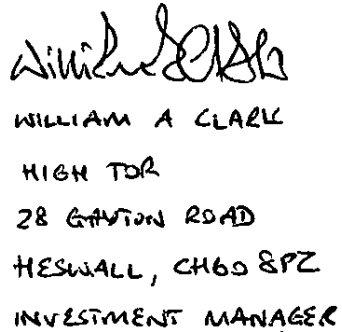 WILLIAM A CLARK
HIGH TOR
28 GAYTON ROAD
HESWALL, CH60 8PZ
INVESTMENT MANAGER